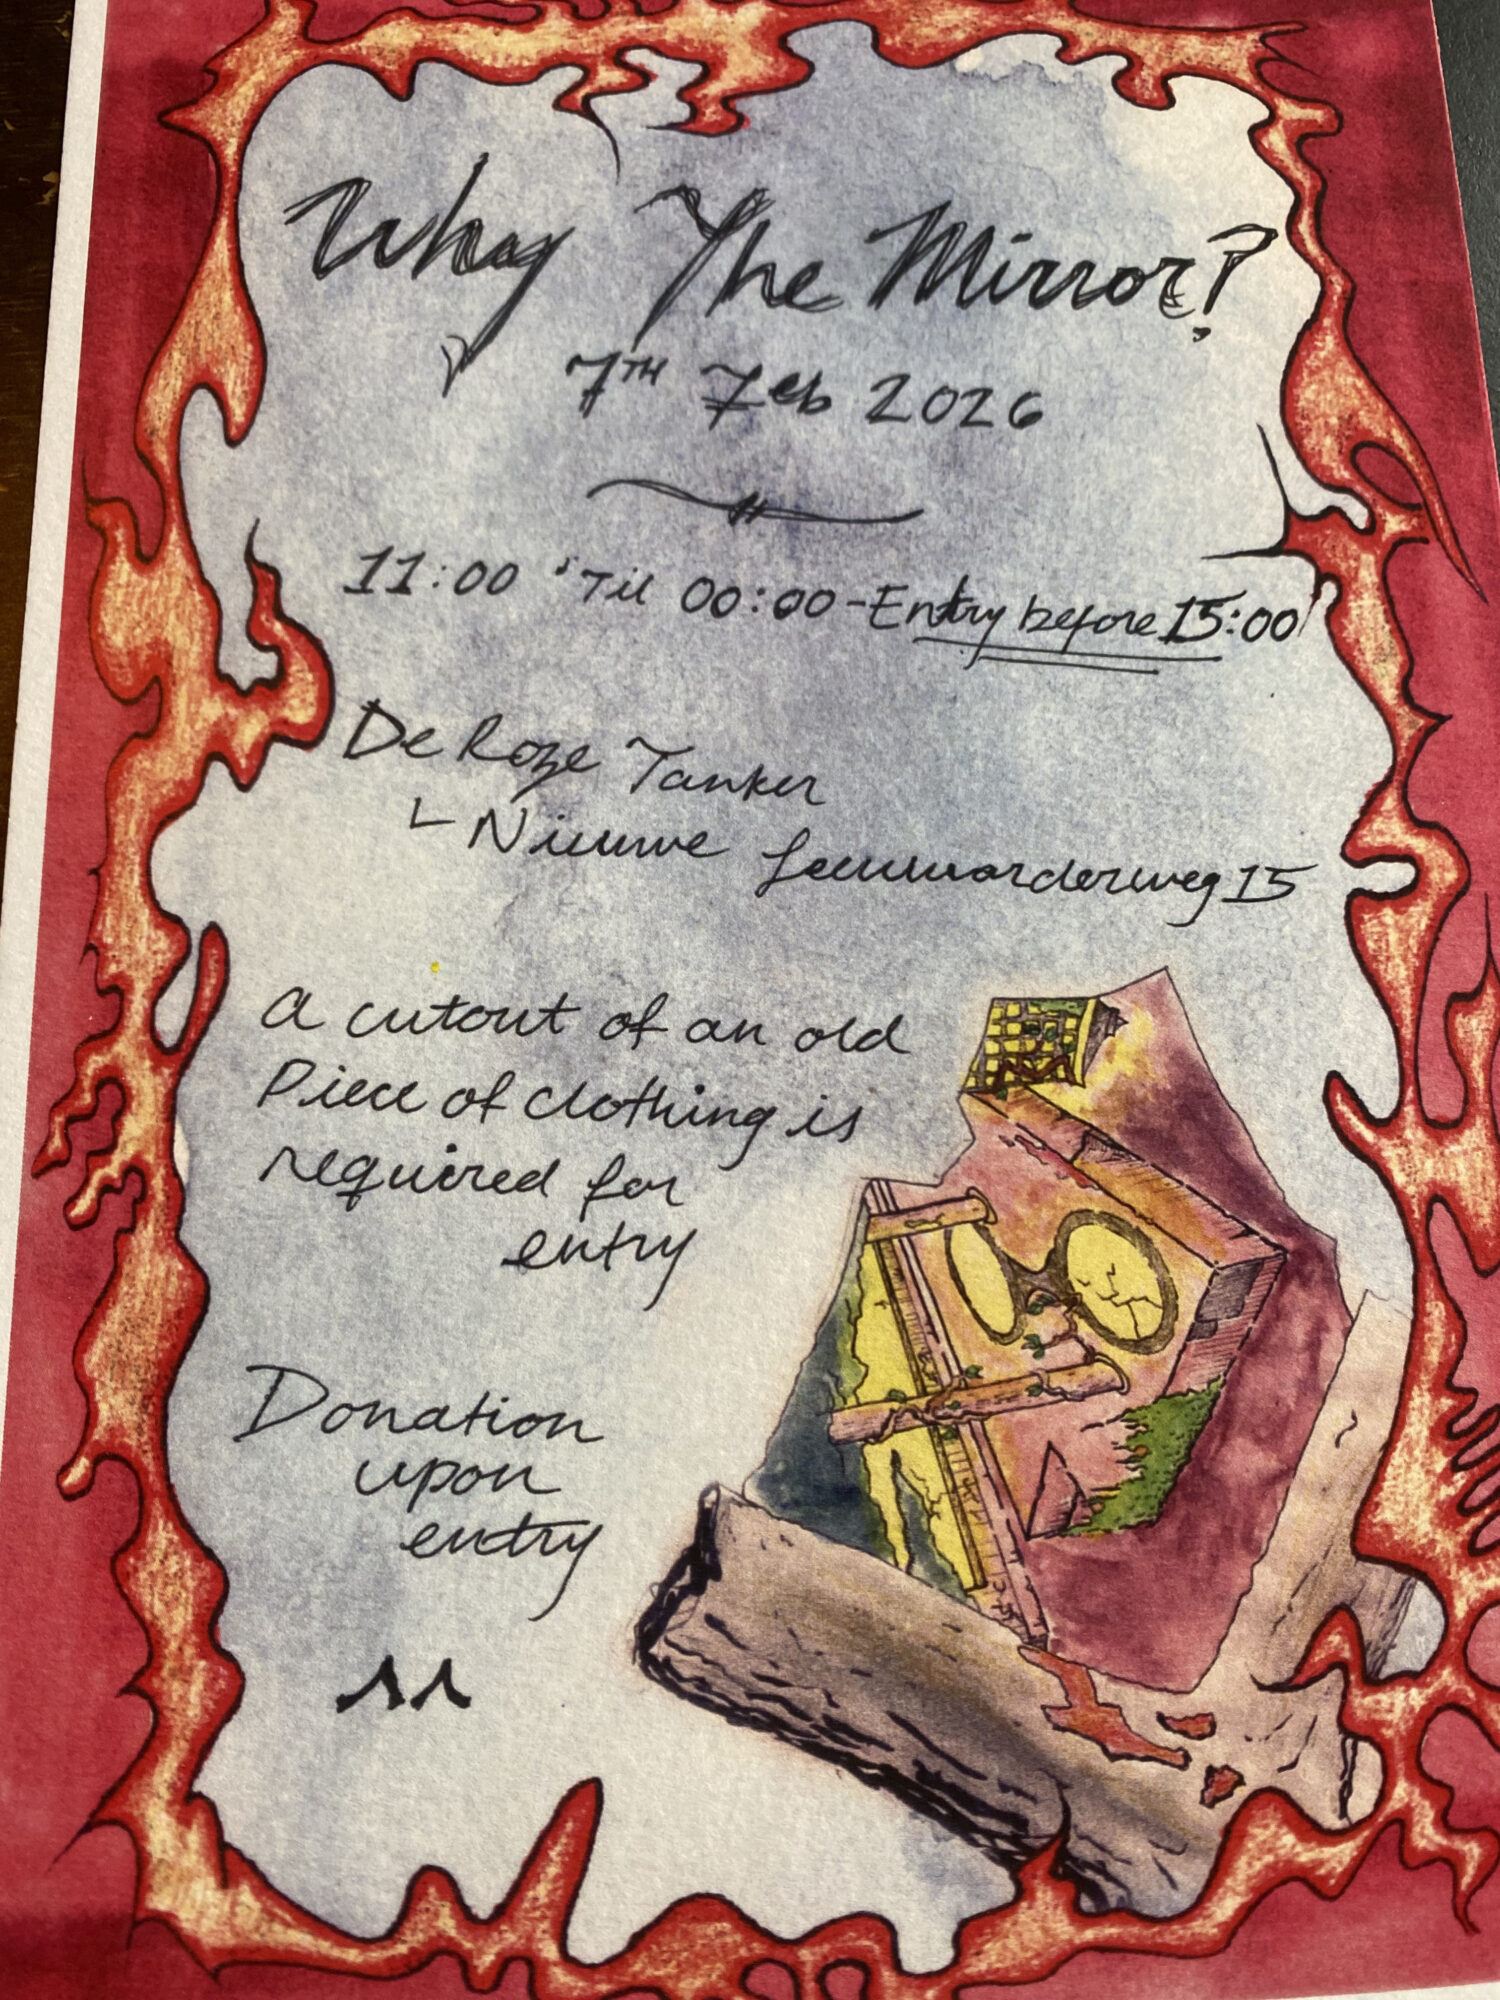 Why The Mirror?
7TH Feb 2026
11:00 'Til 00:00 - Entry before 15:00
De Roze Tanker
Nieuwe Leeuwarderweg 15
A cutout of an old
Piece of clothing is
required for
entry
Donation
upon
entry